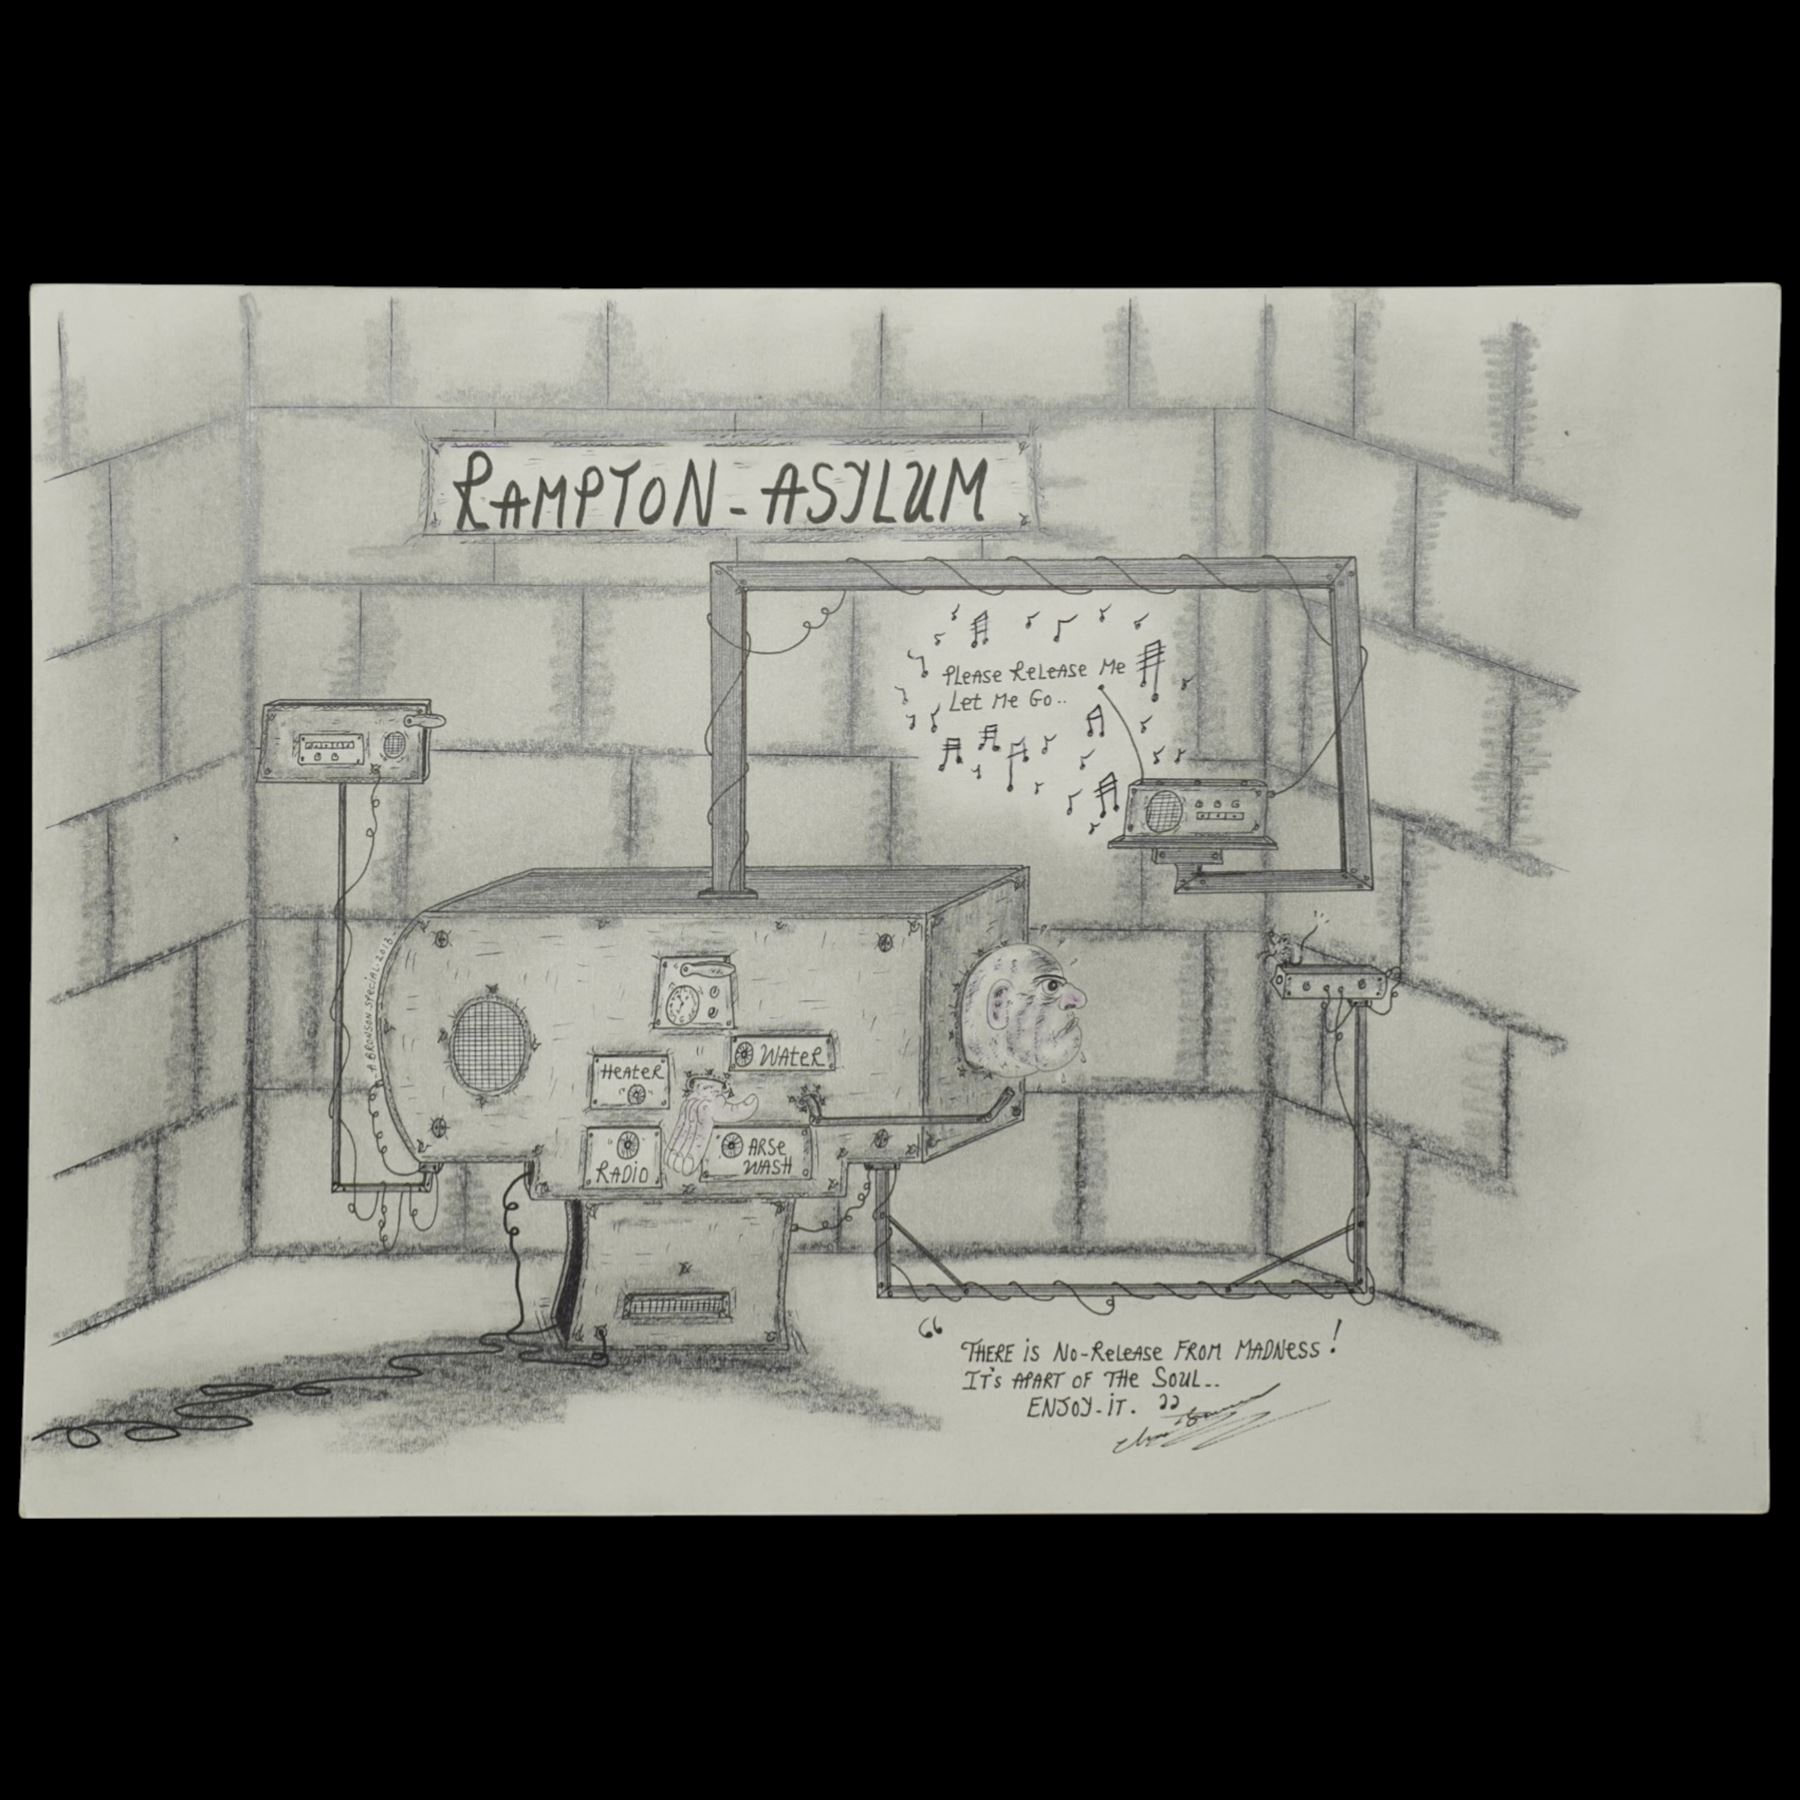 RAMPTON - ASYLUM
PLEASE RELEASE ME
LET ME GO..
A BRONSON SPECIAL. 2018.
WATER
HEATER
RADIO
ARSE
WASH
“ THERE IS NO-RELEASE FROM MADNESS!
IT'S APART OF THE SOUL..
ENJOY-IT. ”